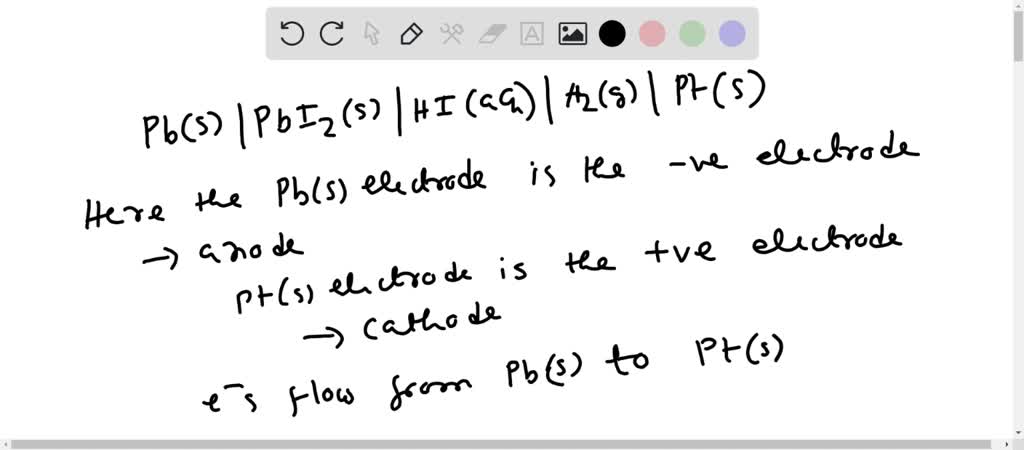 Pb(s) | PbI₂(s) | HI(aq) | H₂(g) | Pt(s)
Here the Pb(s) electrode is the -ve electrode
→ anode
Pt(s) electrode is the +ve electrode
→ cathode
e⁻s flow from Pb(s) to Pt(s)